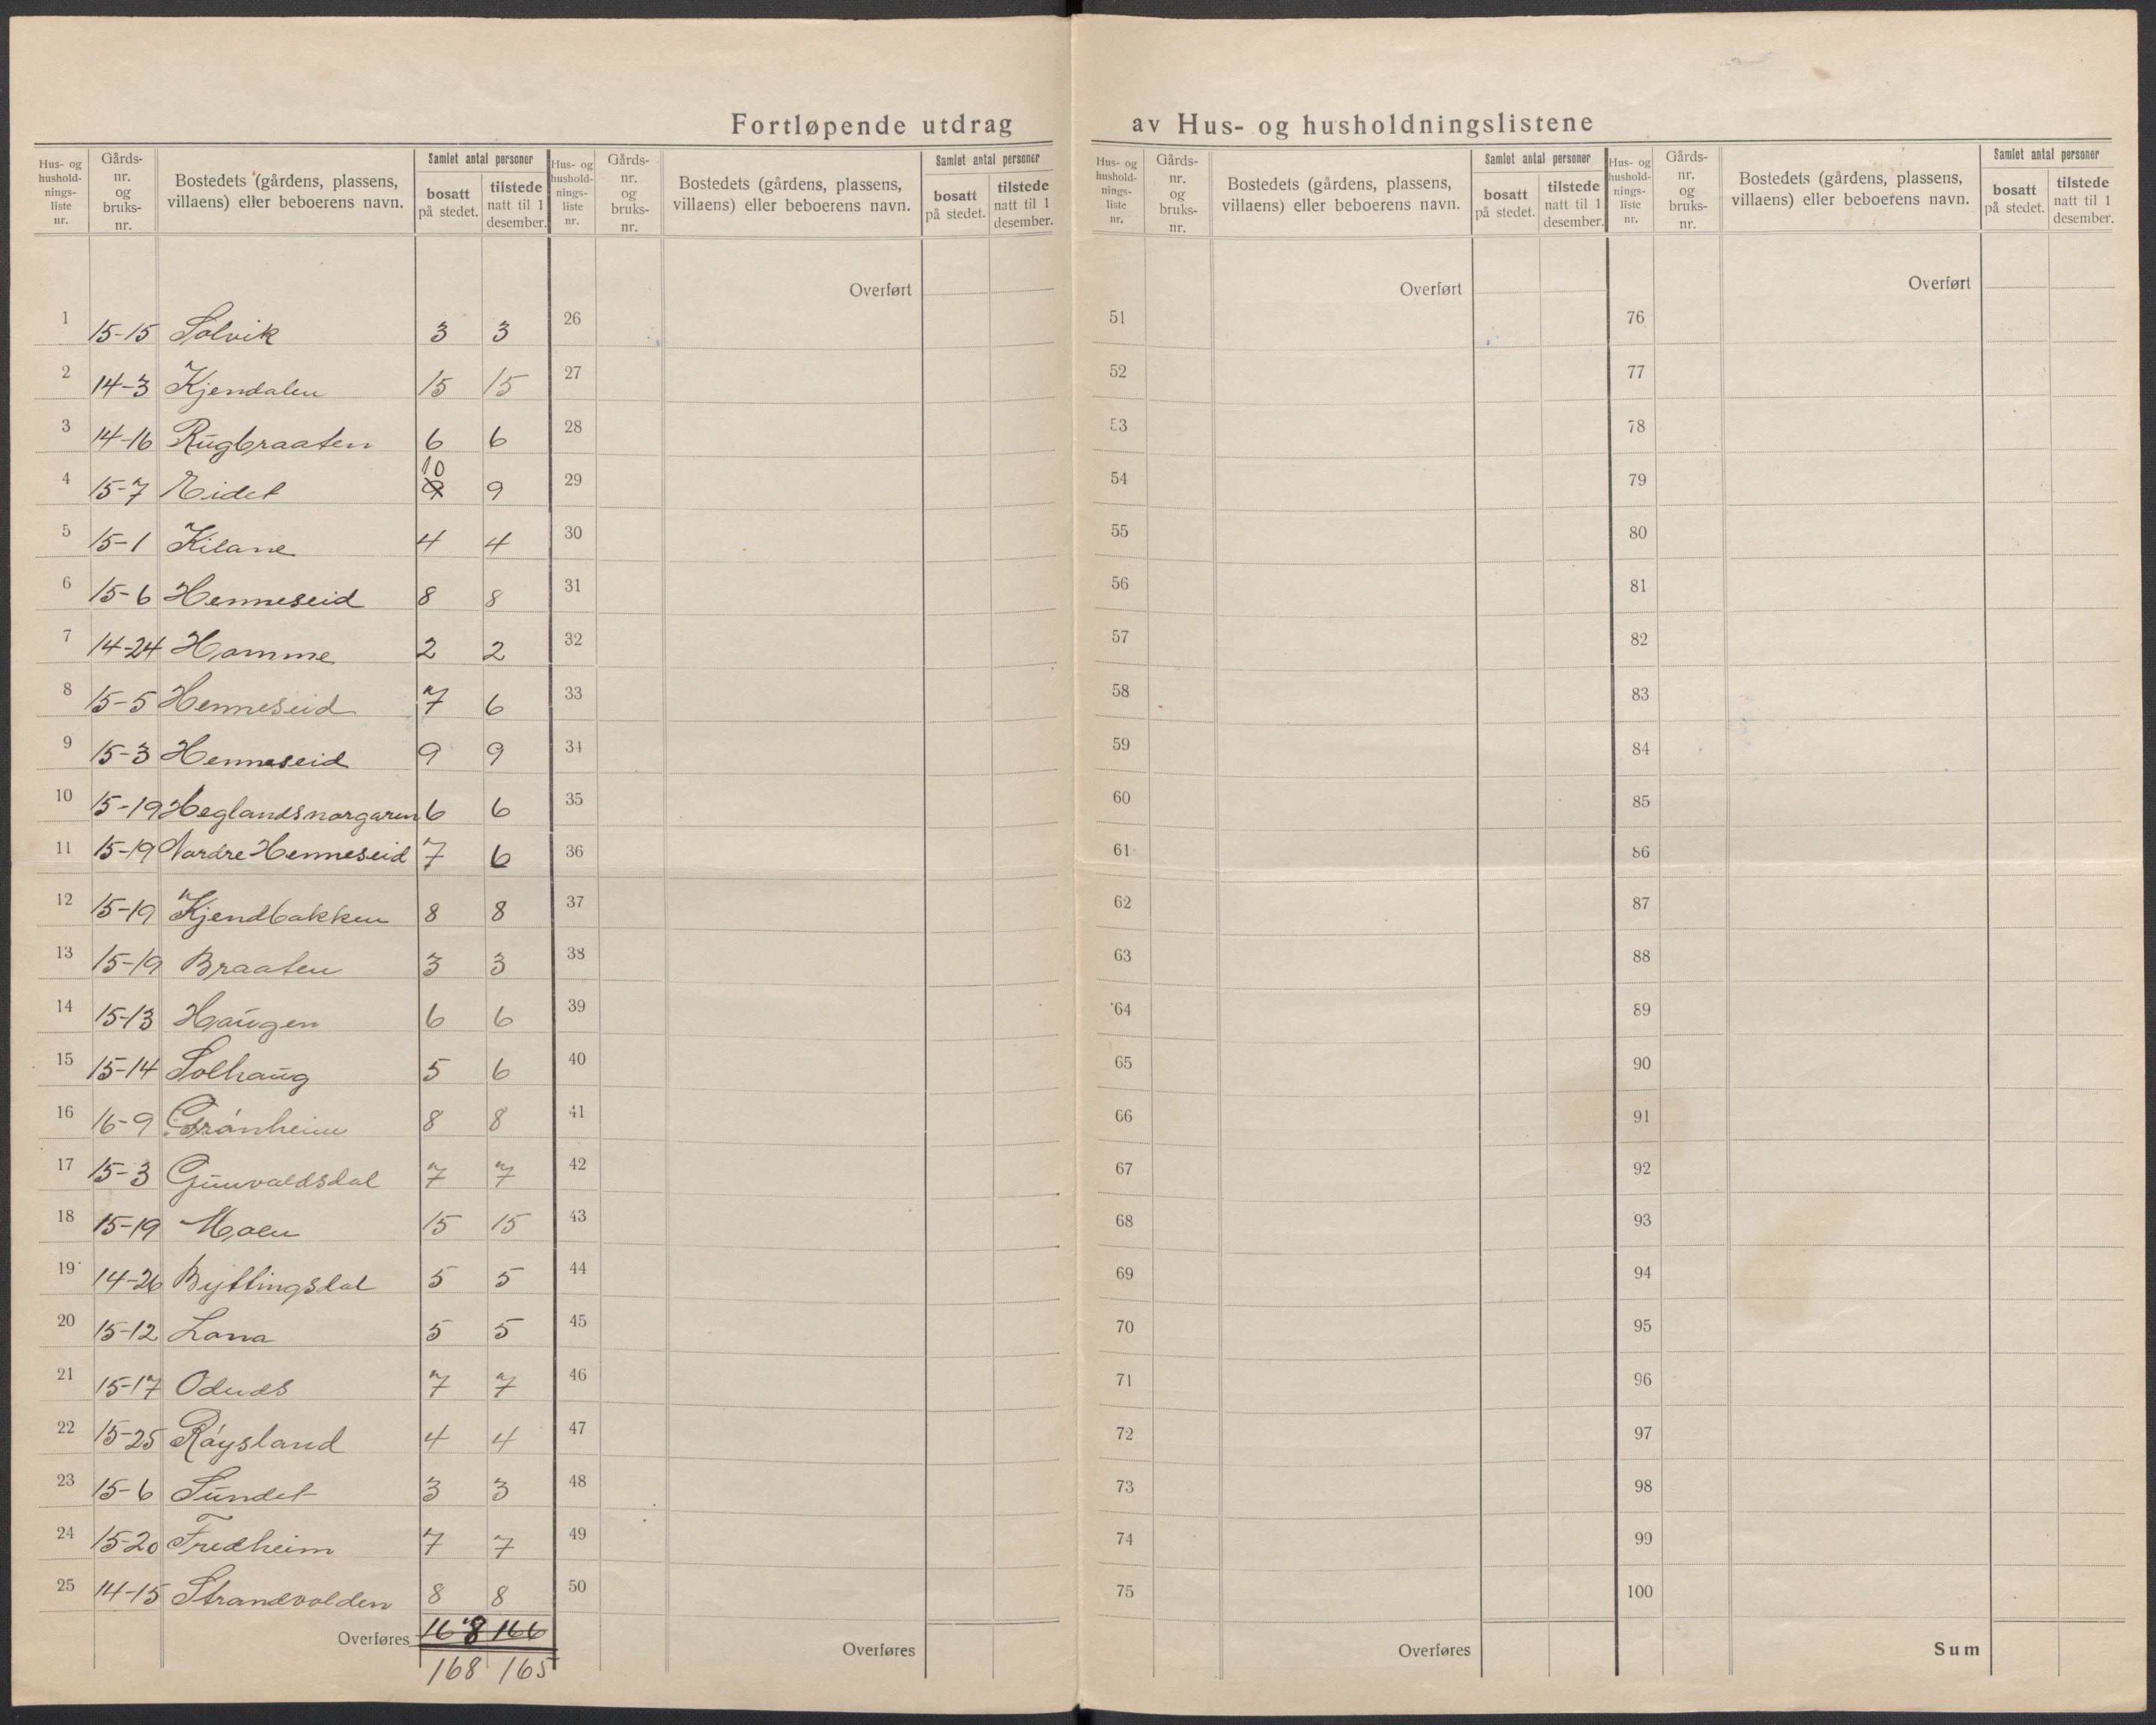 Fortløpende utdrag av Hus- og husholdningslistene
Hus- og husholdnings-liste nr. | Gårds-nr. og bruks-nr. | Bostedets (gårdens, plassens, villaens) eller beboerens navn. | Samlet antal personer | bosatt på stedet. | tilstede natt til 1 desember.
Hus- og husholdnings-liste nr. | Gårds-nr. og bruks-nr. | Bostedets (gårdens, plassens, villaens) eller beboerens navn. | Samlet antal personer | bosatt på stedet. | tilstede natt til 1 desember.
Hus- og husholdnings-liste nr. | Gårds-nr. og bruks-nr. | Bostedets (gårdens, plassens, villaens) eller beboerens navn. | Samlet antal personer | bosatt på stedet. | tilstede natt til 1 desember.
Hus- og husholdnings-liste nr. | Gårds-nr. og bruks-nr. | Bostedets (gårdens, plassens, villaens) eller beboerens navn. | Samlet antal personer | bosatt på stedet. | tilstede natt til 1 desember.
Overført Overført Overført
1 15-15 Solvik 3 3 26 51 76
2 14-3 Kjendalen 15 15 27 52 77
3 14-16 Rugbraaten 6 6 28 53 78
4 15-7 Eidet 10 9 9 29 54 79
5 15-1 Kilane 4 4 30 55 80
6 15-6 Henneseid 8 8 31 56 81
7 14-24 Homme 2 2 32 57 82
8 15-5 Henneseid 7 6 33 58 83
9 15-3 Henneseid 9 9 34 59 84
10 15-19 Heglandsnorgaren 6 6 35 60 85
11 15-19 Nordre Henneseid 7 6 36 61 86
12 15-19 Kjendbakken 8 8 37 62 87
13 15-19 Braaten 3 3 38 63 88
14 15-13 Haugen 6 6 39 64 89
15 15-14 Solhaug 5 6 40 65 90
16 16-9 Grónheim 8 8 41 66 91
17 15-3 Gunvaldsdal 7 7 42 67 92
18 15-19 Moen 15 15 43 68 93
19 14-26 Byttingsdal 5 5 44 69 94
20 15-12 Lona 5 5 45 70 95
21 15-17 Odnes 7 7 46 71 96
22 15-25 Róysland 4 4 47 72 97
23 15-6 Sundet 3 3 48 73 98
24 15-20 Fredheim 7 7 49 74 99
25 14-15 Strandvolden 8 8 50 75 100
Overføres 168 166 Overføres Overføres Sum
168 165